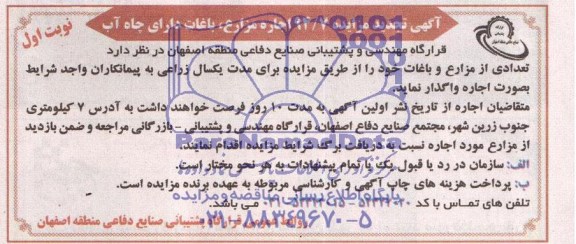 آگهی تجدید مزایده اجاره مزارع، باغات دارای چاه آب
نوبت اول
قرارگاه مهندسی و پشتیبانی صنایع دفاعی منطقه اصفهان در نظر دارد
تعدادی از مزارع و باغات خود را از طریق مزایده برای مدت یکسال زراعی به پیمانکاران واجد شرایط
بصورت اجاره واگذار نماید.
متقاضیان اجاره از تاریخ نشر اولین آگهی به مدت ۱۰ روز فرصت خواهند داشت به آدرس ۷ کیلومتری
جنوب زرین شهر، مجتمع صنایع دفاع اصفهان، قرارگاه مهندسی و پشتیبانی - بازرگانی مراجعه و ضمن بازدید
از مزارع مورد اجاره نسبت به دریافت برگه شرایط مزایده اقدام نمایند.
الف: سازمان در رد یا قبول یک یا تمام پیشنهادات به هر نحو مختار است.
ب: پرداخت هزینه های چاپ آگهی و کارشناسی مربوطه به عهده برنده مزایده است.
تلفن های تماس با کد می باشد.
روابط عمومی قرارگاه پشتیبانی صنایع دفاعی منطقه اصفهان
ParsNamadData
پایگاه اطلاع رسانی مناقصه و مزایده
۰۲۱-۸۸۳۴۹۶۷۰-۵